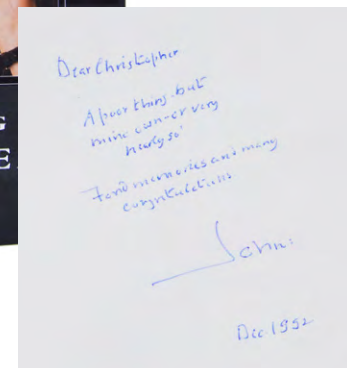 G
E
Dear Christopher
A poor thing - but
mine own - er very
nearly so'
Fond memories and many
congratulations.
John.
Dec 1992